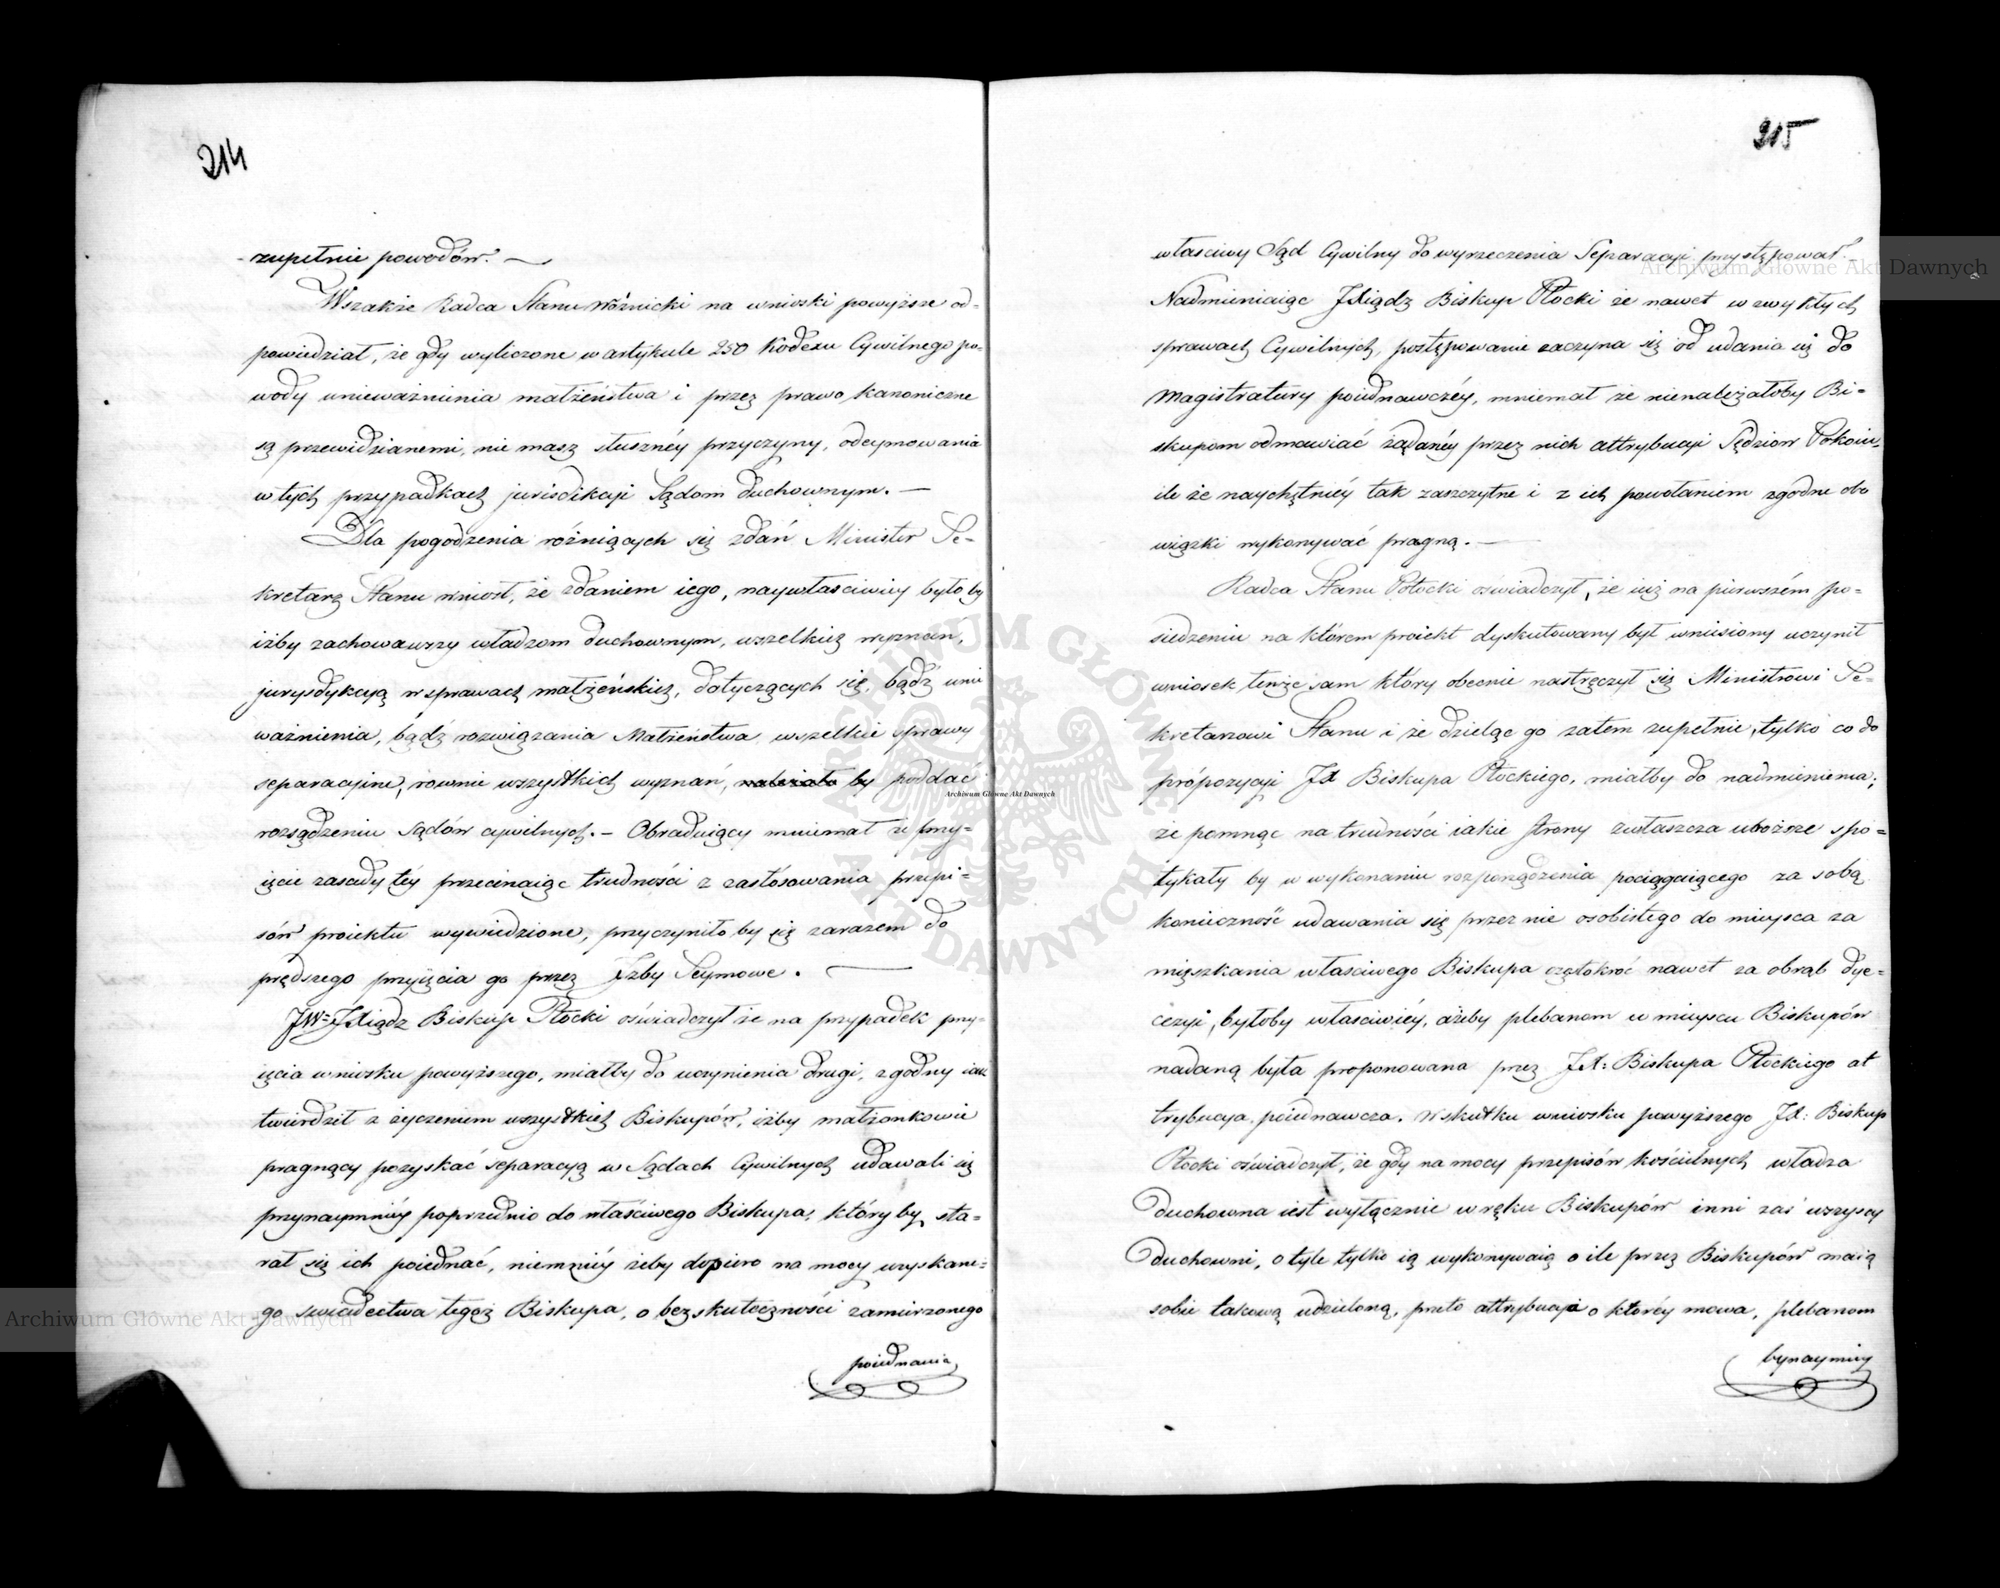 214
zupełnie powodów. —
Wszakże Radca Stanu Woźnicki na wnioski powyższe od-
powiedział, że gdy wyliczone w artykule 250 Kodexu Cywilnego po-
wody unieważnienia małżeństwa i przez prawo kanoniczne
są przewidzianemi, nie masz słusznéy przyczyny, odeymowania
w tych przypadkach jurisdikcji Sądom duchownym. —
Dla pogodzenia różniących się zdań Minister Se-
kretarz Stanu wniosł, że zdaniem iego, naywłaściwiéy byłoby
iżby zachowawszy władzom duchownym, wszelkich wyznań,
jurysdykcyą w sprawach małżeńskich, dotyczących się, bądź unie
ważnienia, bądź rozwiązania Małżeństwa wszelkie sprawy
separacyjne, rownie wszystkich wyznań, by poddać
rozsądzeniu Sądów cywilnych. — Obraduiący mniemał iż przy-
ięcie zasady téy przecinaiąc trudności z zastosowania przepi-
sów proiektu wywiedzione, przyczyniłoby się zarazem do
prędszego przyięcia go przez Izby Seymowe. —
JW= JXiądz Biskup Płocki oświadczył że na przypadek przy-
ięcia wniosku powyższego, miałby do uczynienia drugi, zgodny iak
twierdził z życzeniem wszystkich Biskupów, iżby małżonkowie
pragnący pozyskać separacyą w Sądach Cywilnych udawali się
przynaymniéy poprzednio do właściwego Biskupa, któryby sta-
rał się ich poiednać, niemniéy żeby dopiero na mocy uzyskane-
go świadectwa tegoż Biskupa, o bezskuteczności zamierzonego
poiednania
215
właściwy Sąd Cywilny do wyrzeczenia Separacyi przystępował. —
Nadmieniaiąc JXiądz Biskup Płocki że nawet w zwykłych
sprawach Cywilnych, postępowanie zaczyna się od udania się do
Magistratury poiednawczéy, mniemał że nienależałoby Bi=
skupom odmawiać żądanéy przez nich attrybucyi Sędziow Pokoiu,
ile że naychętniéy tak zaszczytne i z ich powołaniem zgodne obo
wiązki wykonywać pragną. —
Radca Stanu Potocki oświadczył, że iuż na pierwszém po=
siedzeniu na którem proiekt dyskutowany był wniesiony uczynił
wniosek tenże sam który obecnie nastręczył się Ministrowi Se=
kretarzowi Stanu i że dzieląc go zatem zupełnie, tylko co do
propozycyi JX Biskupa Płockiego, miałby do nadmienienia;
że pomnąc na trudności iakie strony zwłaszcza uboższe spo=
tykały by w wykonaniu rozporządzenia pociągaiącego za sobą
konieczność udawania się przez nie osobistego do mieysca za
mieszkania właściwego Biskupa częstokroć nawet za obrąb dye=
cezyi, byłoby właściwiéy, ażeby plebanom w mieyscu Biskupów
nadaną była proponowana przez JX: Biskupa Płockiego at
trybucya poiednawcza. W skutku wniosku powyższego JX: Biskup
Płocki oświadczył, że gdy na mocy przepisów kościelnych władza
duchowna iest wyłącznie w ręku Biskupów inni zaś wszyscy
duchowni, o tyle tylko ią wykonywaią o ile przez Biskupów maią
sobie takową udzieloną, przeto attrybucyi o któréy mowa, plebanom
bynaymniéy
Archiwum Główne Akt Dawnych
Archiwum Główne Akt Dawnych
Archiwum Główne Akt Dawnych
ARCHIWUM GŁÓWNE
AKT DAWNYCH